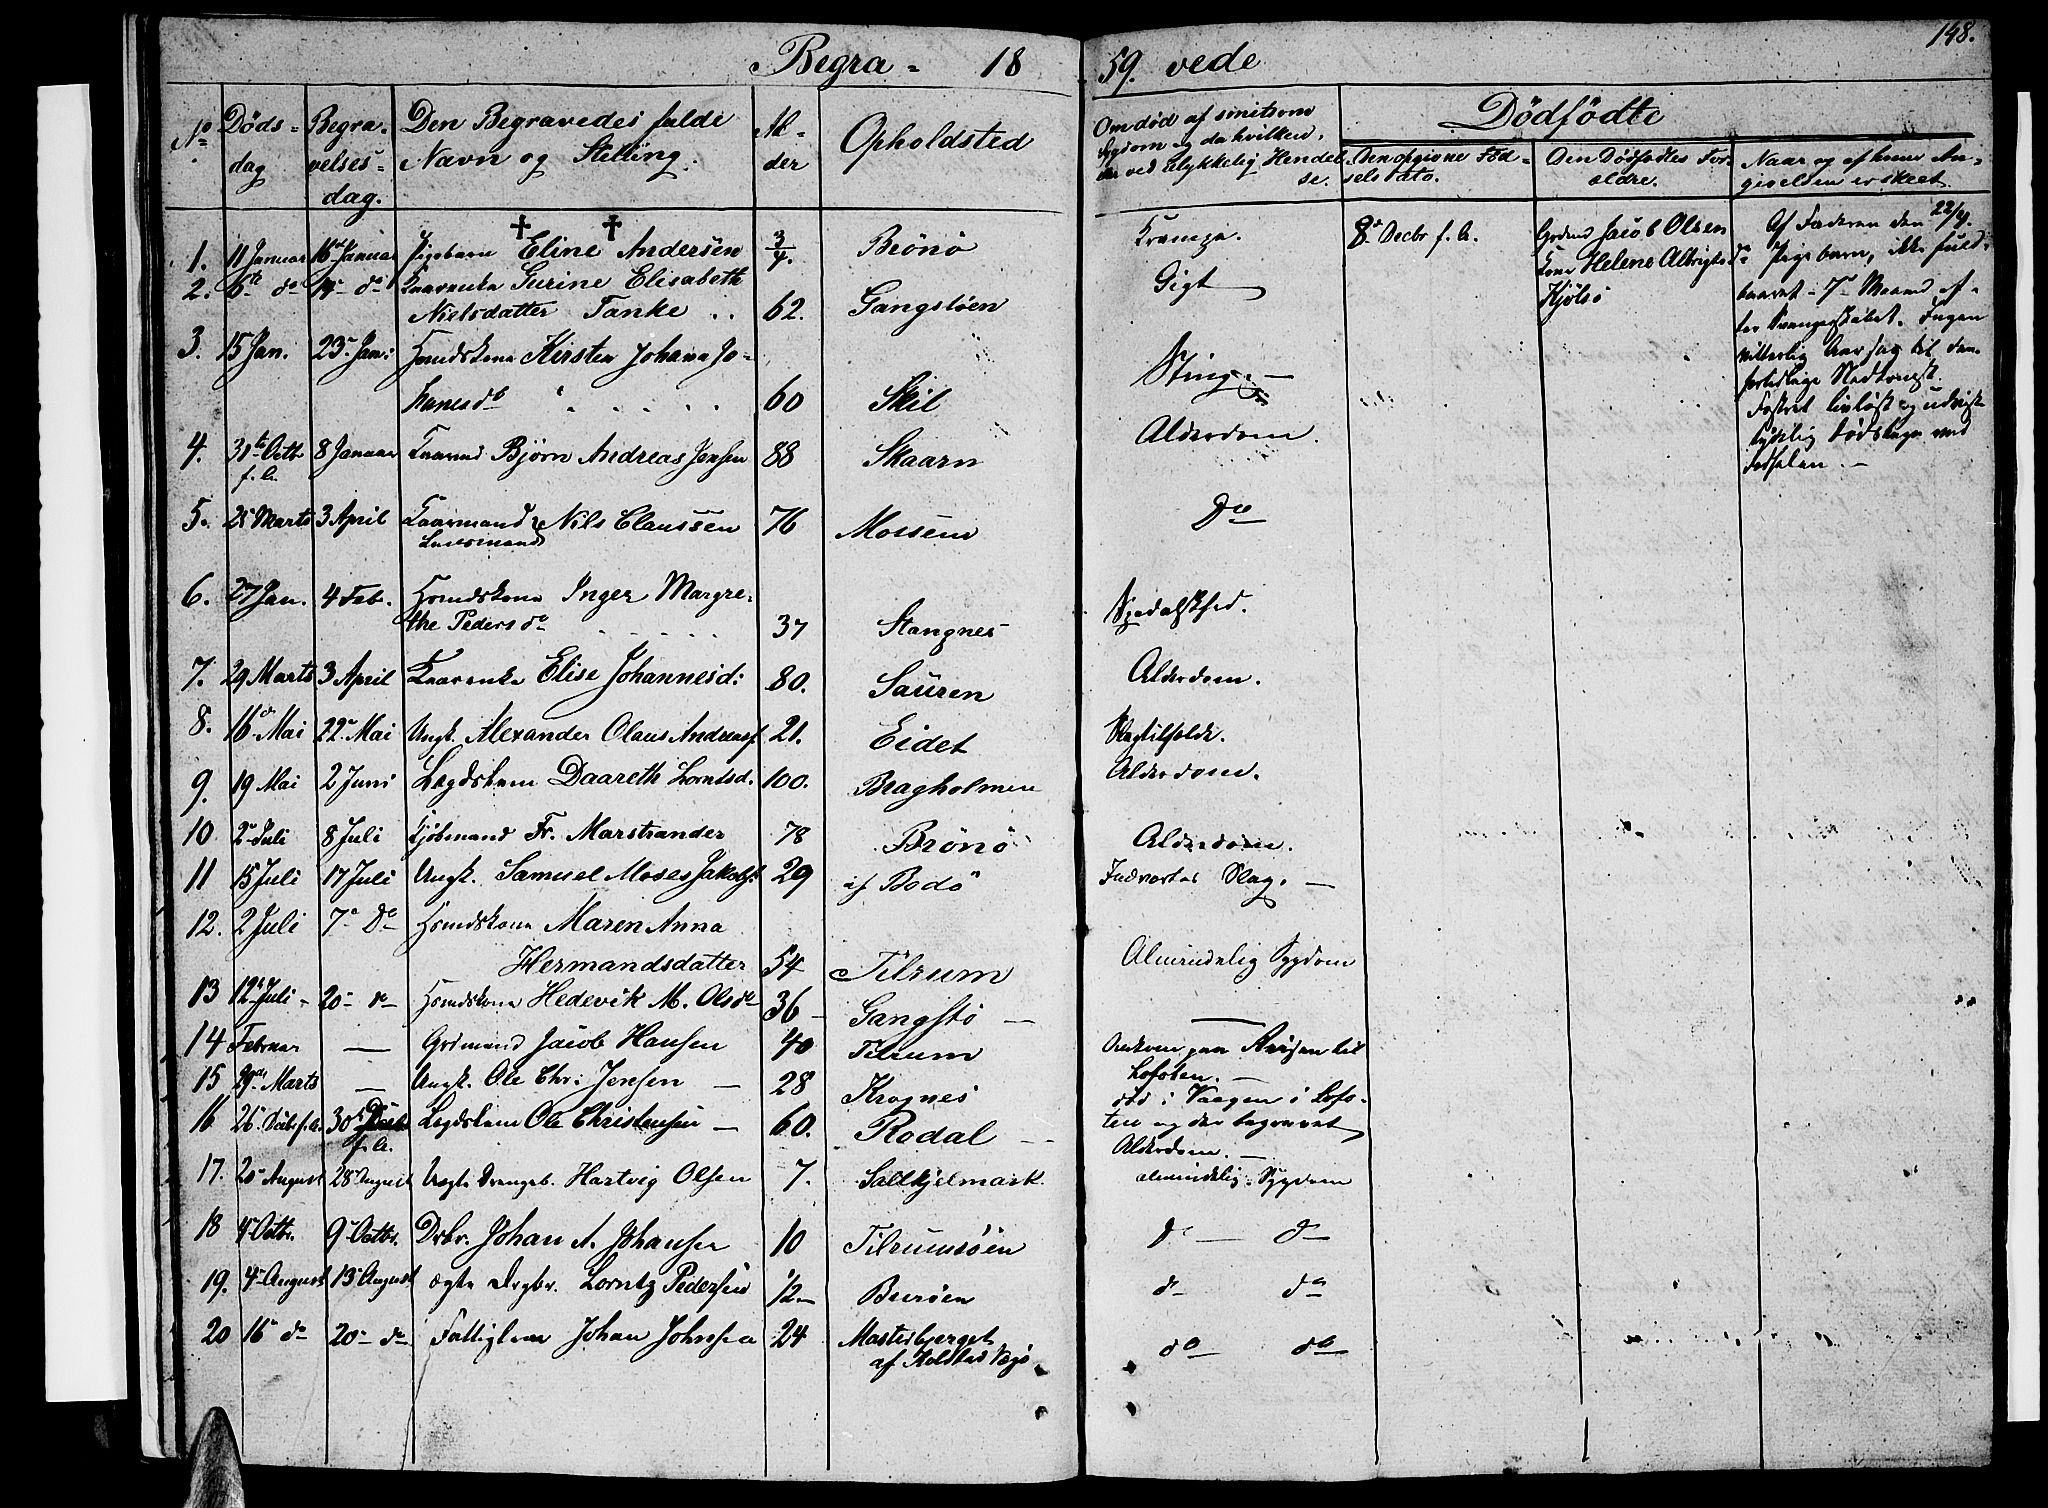 148.
Begra- 18 59. vede
No Döds-dag Begra-velses-dag. Den Begravedes fulde Navn og Stilling. Al-der Opholdsted Om död af smitsom Sygdom og da hvilken, ved Ulykkelig Hendelse. Dödfödte
Den opgivne Föd-sels Dato. Den Dödfödtes For-ældre. Naar og af hvem An-givelsen er skeet.
1. 11 Januar 16 Januar Pigebarn Eline Andersen 3/4. Brönö Krampe. 8de Decbr f. A.
Grdmd Jacob Olsen
Kone Helene Albrigtsd
Kjölsö
Af Faderen den 22/4.
Pigebarn, ikke fuld-
baaret - 7 Maaned ef-
ter Svangerskabet. Ingen
vitterlig Aarsag til den
fortidlige Nedkomst.
Fostret livlöst og udviste
tydelig Dödstegn ved
Födselen. -
2. 6te do 14 do Kaarenke Gurine Elisabeth
Nielsdatter Tanke .. 62. Gangstöen Gigt
3. 15 Jan. 23 Jan: Hsmdskone Kirsten Johana Jo-
hanesdr 60 Skil Sting. -
4. 31te Octb f. A. 8 Januar Kaarmd Björn Andreas Jensen 88 Skaarn Alderdom.
5. 25 Marts 3 April Kaarmand Nils Claussen 76 Mossem Do
6. 27 Jan. 4 Feb. Hsmdskone Inger Margre-
the Pedersdr 37 Stangnes Spedalskhed.
7. 29 Marts 3 April Kaarenke Elise Johannesd: 80. Sauren Alderdom.
8. 16 Mai 22 Mai Ungk. Alexander Olaus Andreass 21. Eidet Slagtilfælde.
9. 19 Mai 2 Juni Lægdslem Daareth Lorntsd. 100. Bragholmen Alderdom.
10 2 Juli 8 Juli Kjöbmand Fr. Marstrander 78 Brönö Alderdom.
11 15 Juli 17 Juli Ungk. Samuel Moses Jakobs: 29 af Bodö Indvortes Slag. -
12. 2 Juli 7 Do Hsmdskone Maren Anna
Hermandsdatter 54 Tilrum Almindelig Sygdom
13 12 Juli - 20 do Hsmdskone Hedevik M. Olsdr 36 - Gangstö - -
14 Februar - Grdmand Jacob Hansen 40 Tilrum Omkom paa Reisen til
Lofoten. -
15 29 Marts - Ungk. Ole Chr: Jensen - 28 Krognes död i Vaagen i Lofo-
ten og der begravet
16 26 Decb. f. A. 30 Decb f. A. Lægdslem Ole Christensen - 60. Rodal - Alderdom. -
17. 20 August 28 August Uægte Drengeb. Hartvig Olsen 7. Saltkjelmark almindelig Sygdom
18 4 Octbr. 9 Octbr. Drbr. Johan A. Johansen 10 Tilrumsöen do do
19. 4 August 13 August ægte Drgbr. Lorntz Pedersen 1/2 - Buröen do do
20 16 do 20 do Fattiglem Johan Johnsen 24 Mastubjerget
af Vegö do do